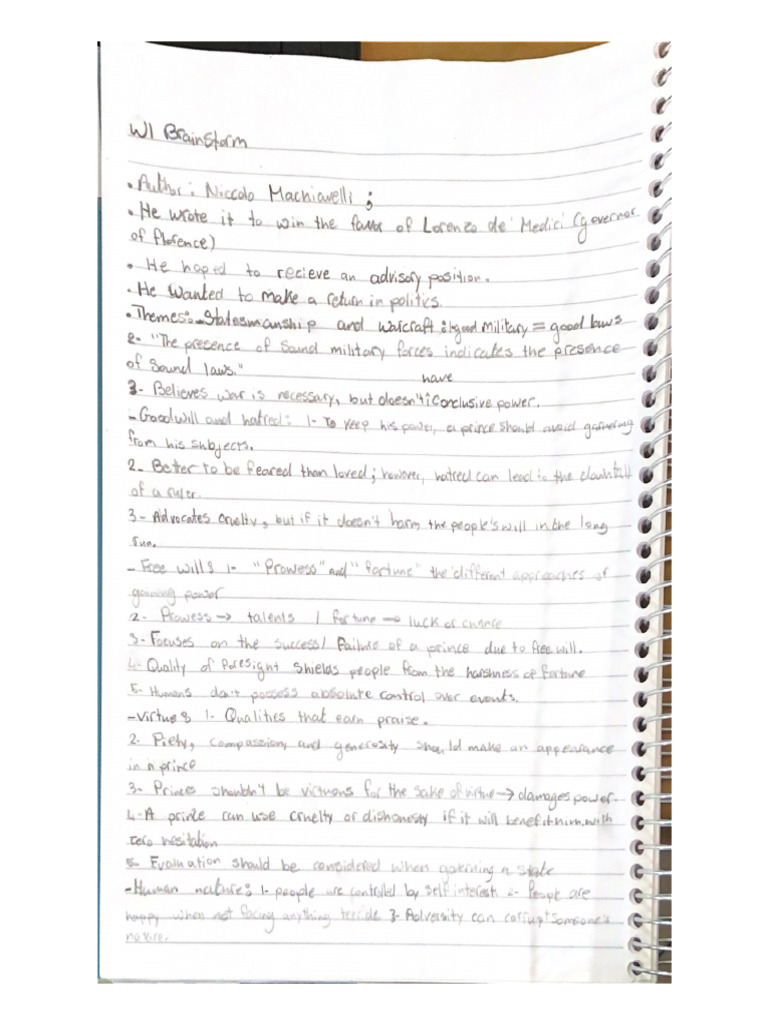 W1 Brainstorm
• Author: Niccolo Machiavelli;
• He wrote it to win the favor of Lorenzo de' Medici (governor
of florence)
• He hoped to recieve an advisory position.
• He wanted to make a return in politics.
• Themes: - Statesmanship and warcraft: 1- good military = good laws
2- "The presence of sound military forces indicates the presence
of sound laws."
have
3- Believes war is necessary, but doesn't conclusive power.
- Goodwill and hatred: 1- To keep his power, a prince should avoid garnering
from his subjects.
2- Better to be feared than loved; however, hatred can lead to the downfall
of a ruler.
3- Advocates cruelty, but if it doesn't harm the people's will in the long
run.
- Free will: 1- "Prowess" and "fortune" the different approaches of
gaining power
2- Prowess → talents / fortune → luck or chance
3- Focuses on the success/ failure of a prince due to free will.
4- Quality of foresight shields people from the harshness of fortune
5- Humans don't possess absolute control over events.
- Virtue: 1- Qualities that earn praise.
2- Piety, compassion, and generosity should make an appearance
in a prince
3- Princes shouldn't be virtuous for the sake of virtue → damages power.
4- A prince can use cruelty or dishonesty if it will benefit him with
zero hesitation
5- Evaluation should be considered when governing a state
- Human nature: 1- people are controlled by self interest 2- People are
happy when not facing anything terrible 3- Adversity can corrupt someone's